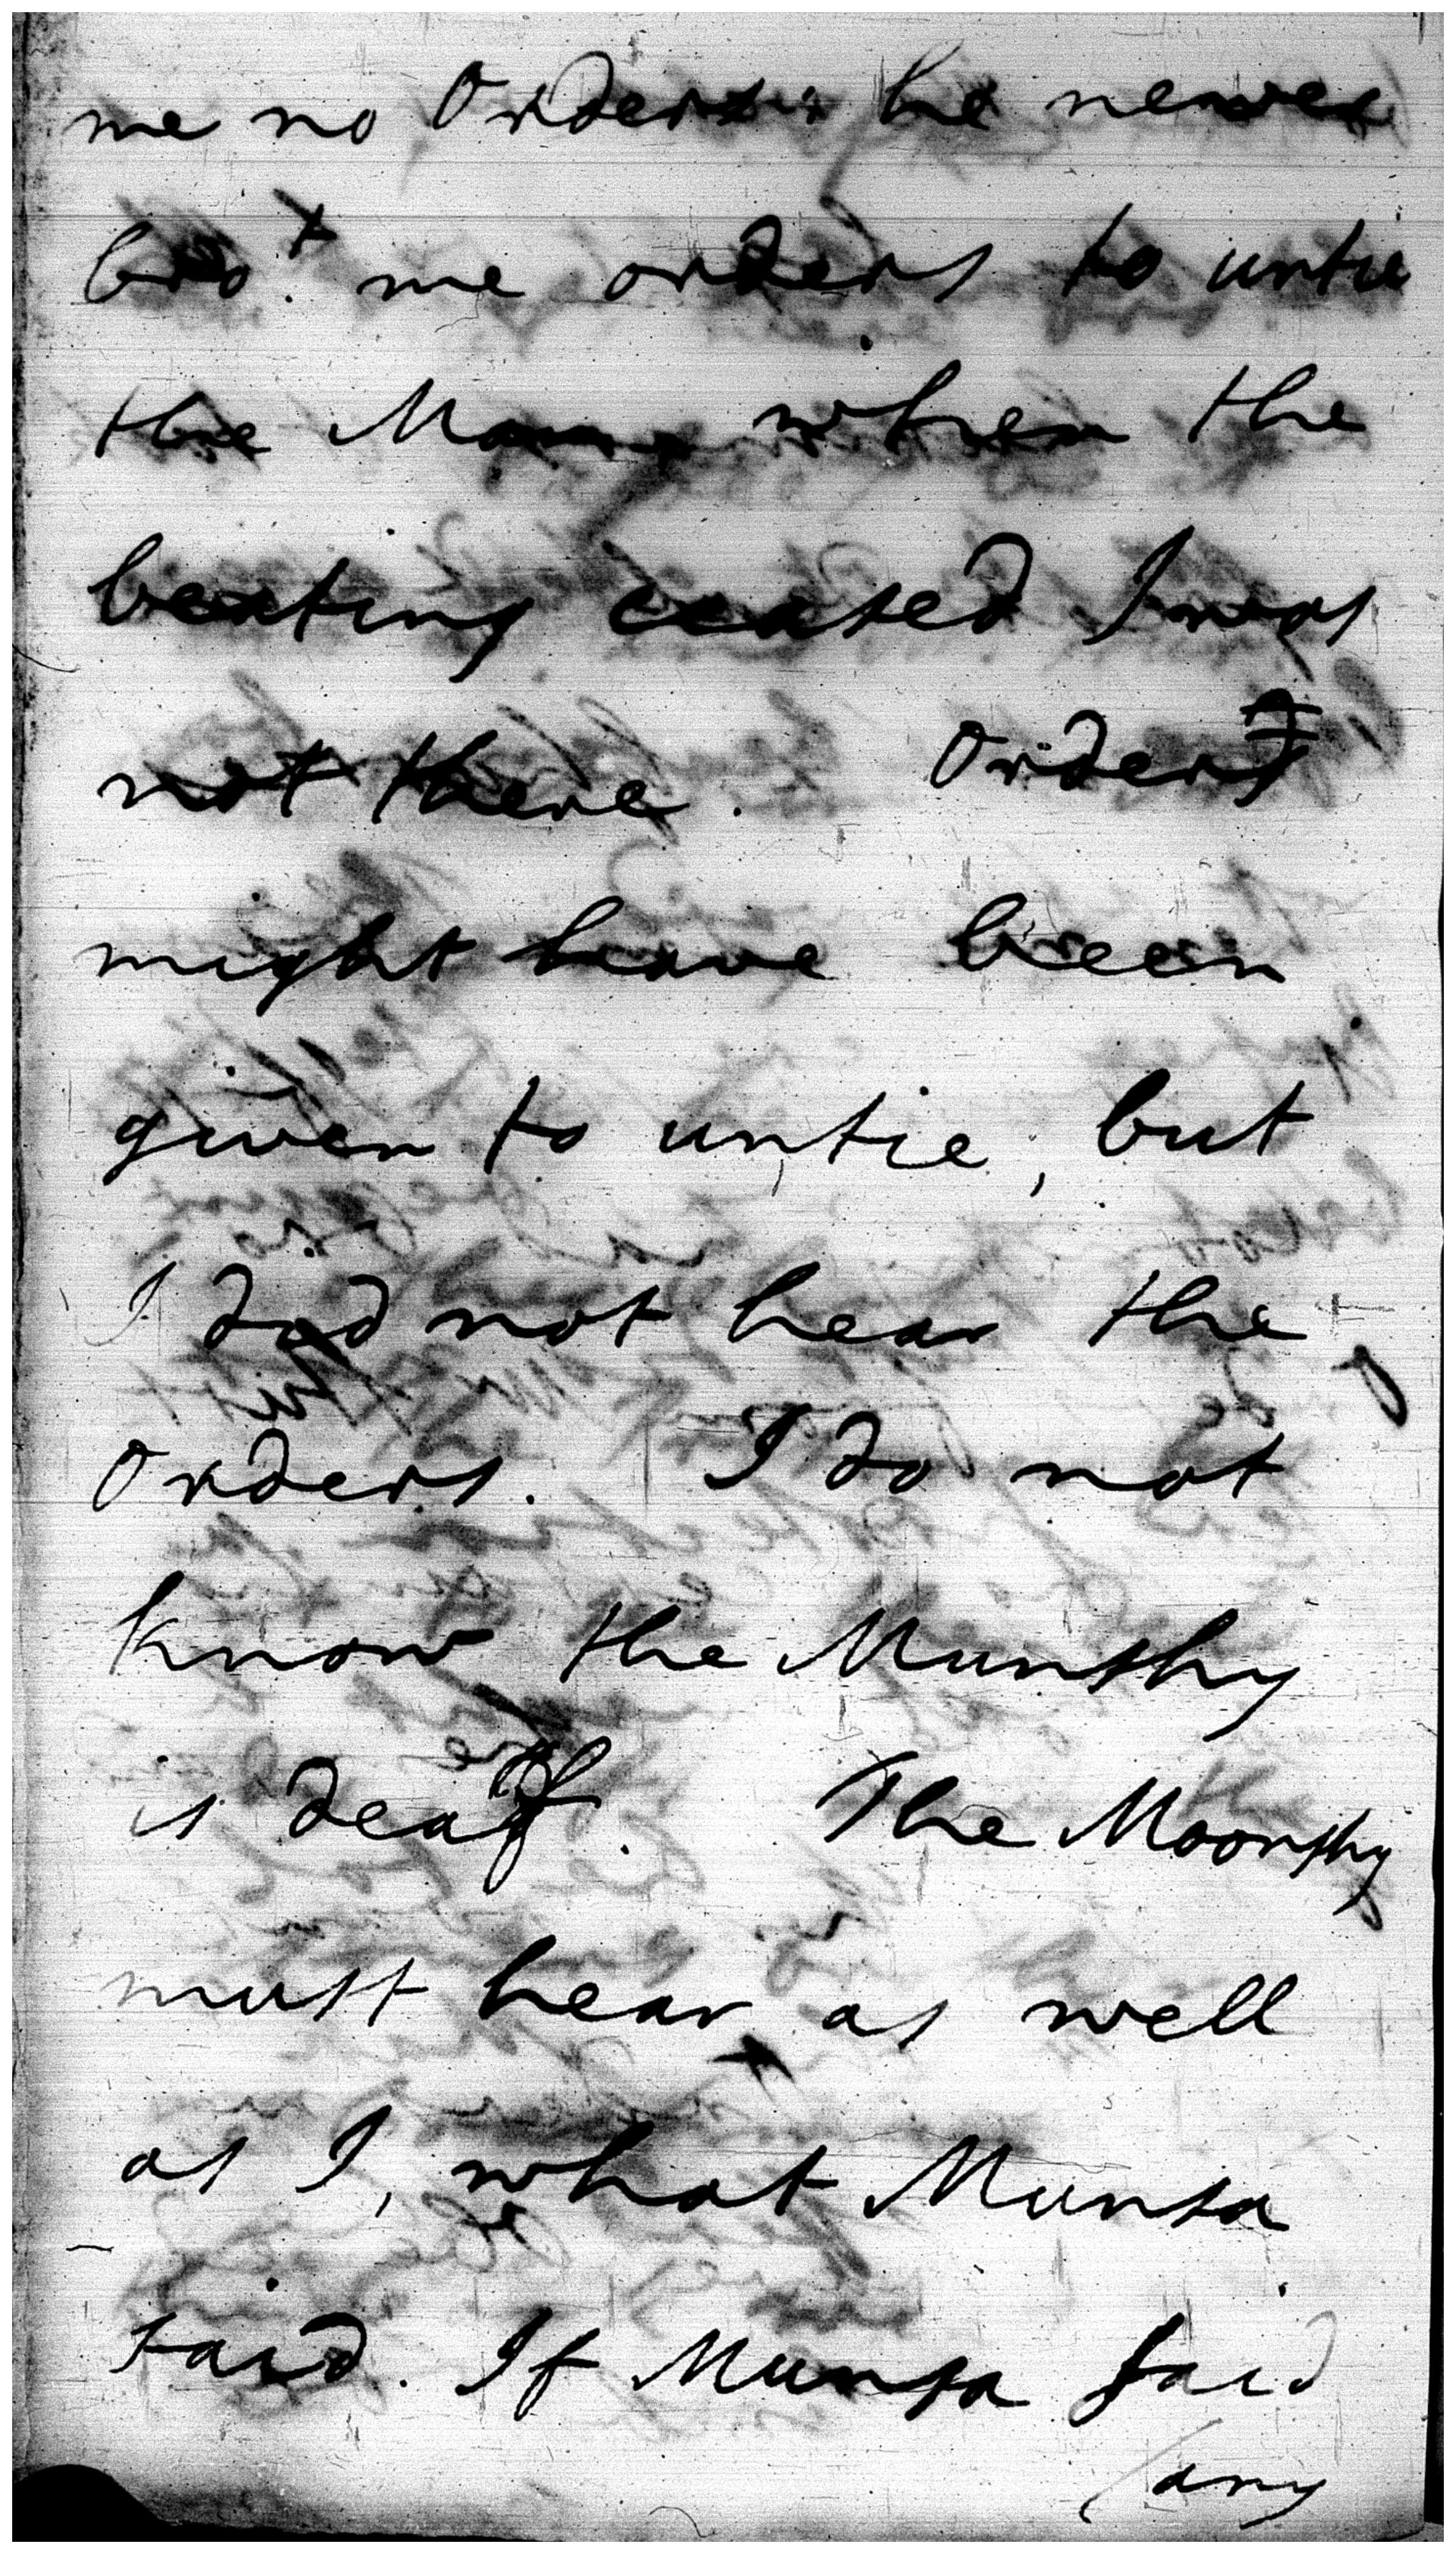 me no Orders, he never
bro.t me orders to untie
the Man, when the
beating ceased I was
not there. Orders
might have been
given to untie, but
I did not hear the
Orders. I do not
know the Munshy
is deaf. The Moonshy
must hear as well
as I, what Munsa
said. If Munsa said
/any